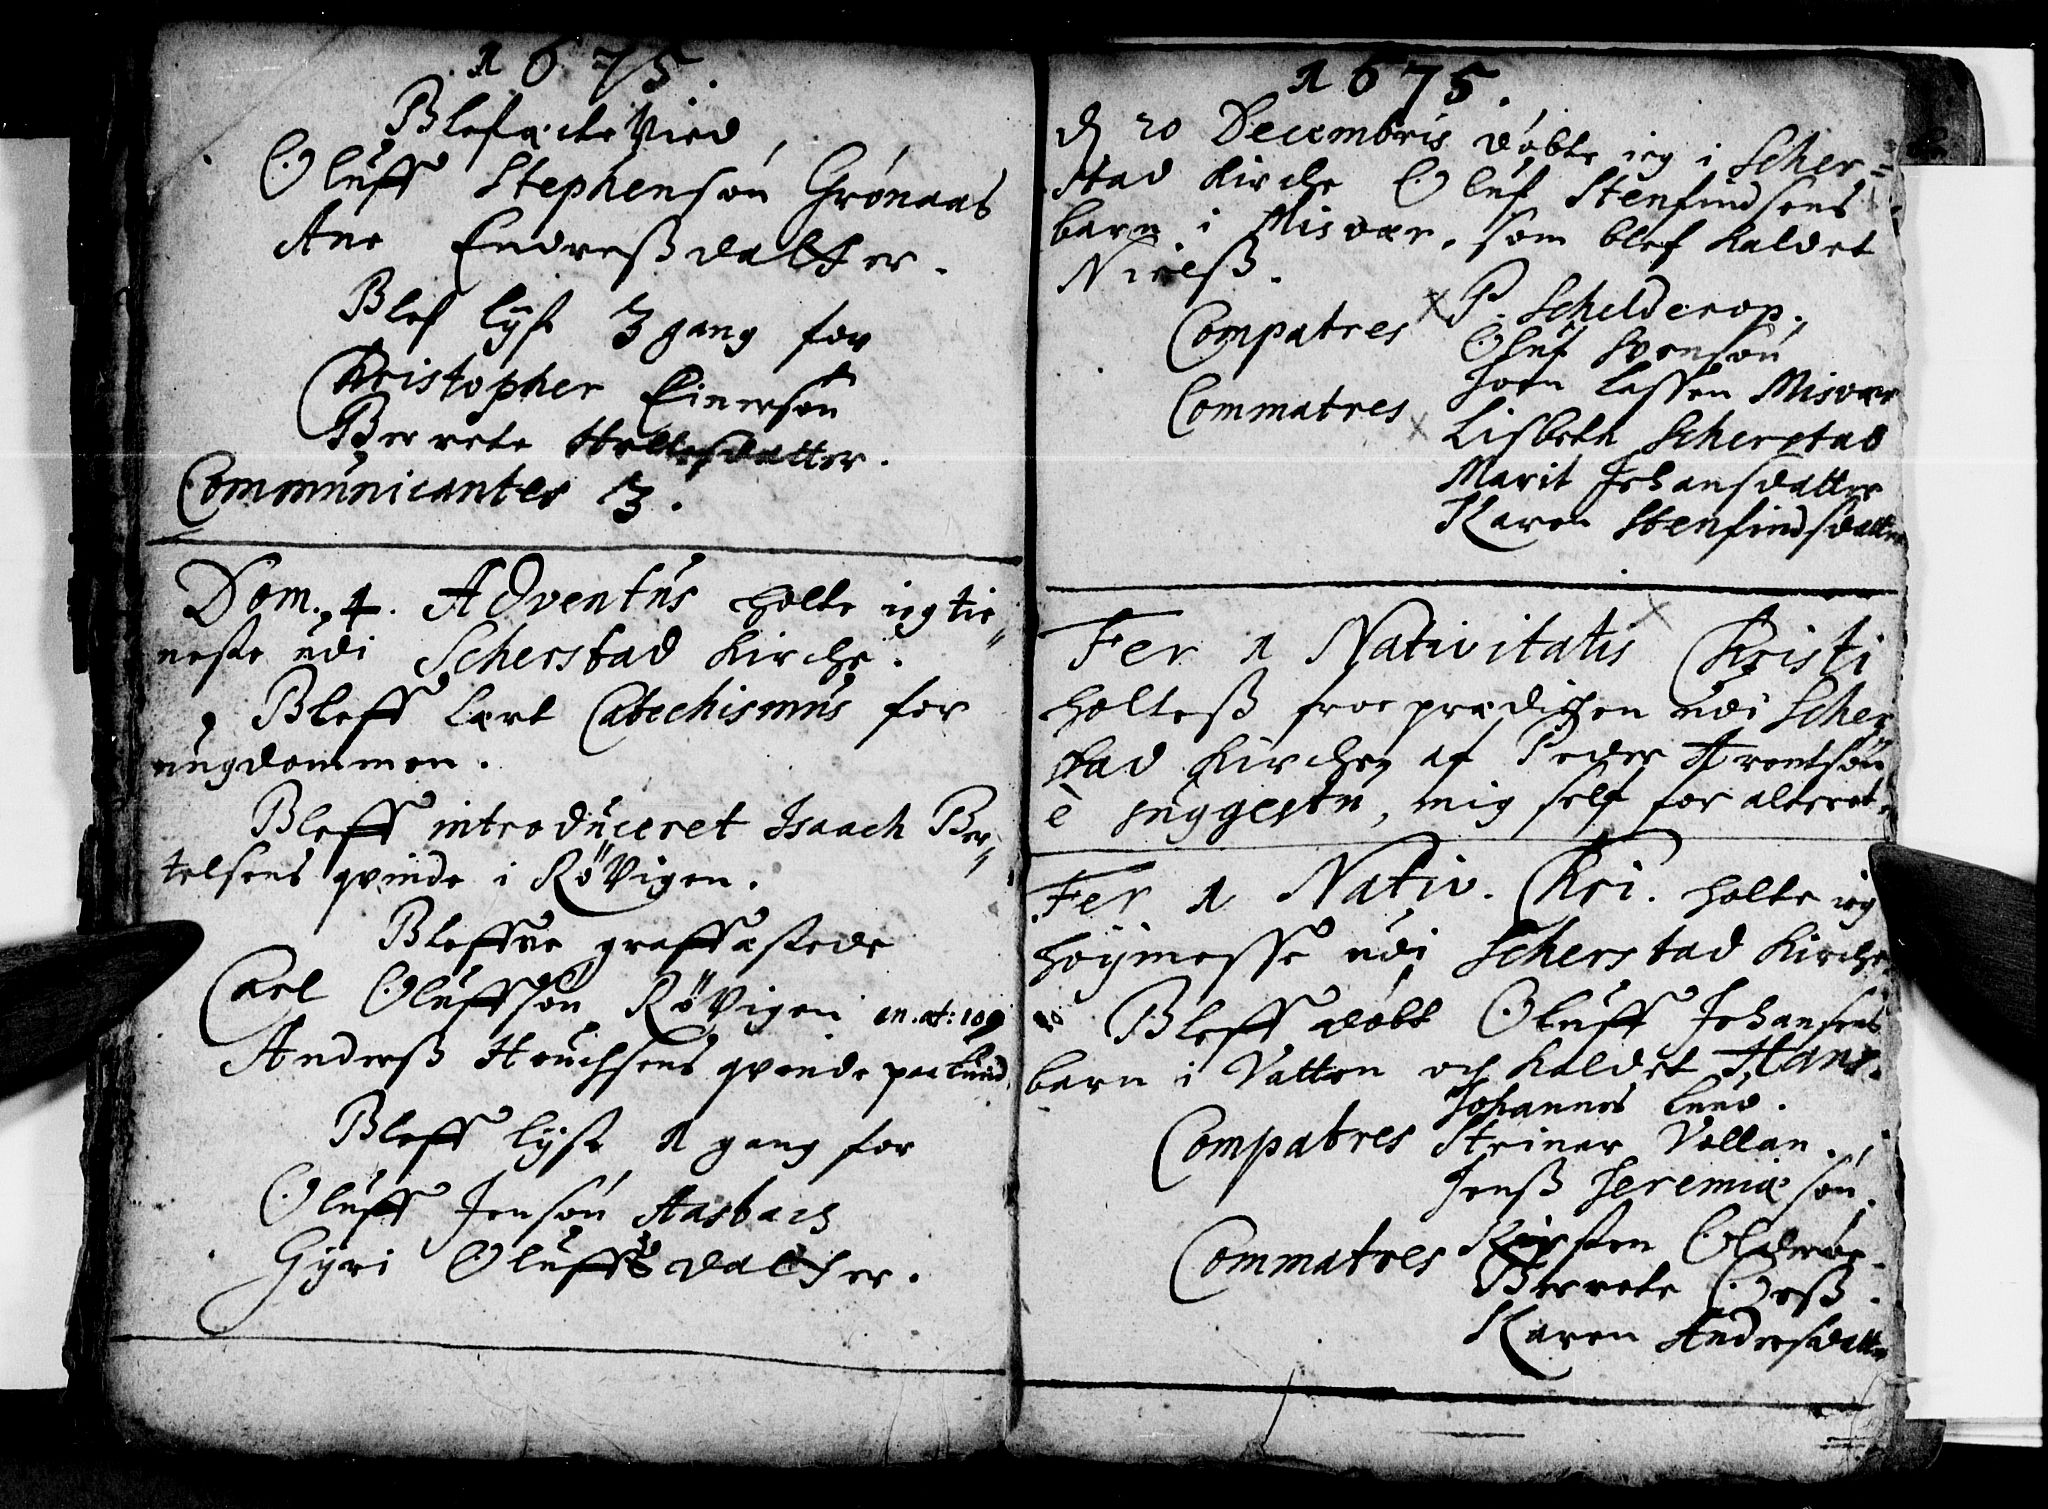 1675.
Blef æcte Vied
Oluff Stephensøn Grønaas
Ane Endersß datther.
Blef lyst 3 gang for
Christopher Einersøn
Berrete datter.
Communicantes 3.
Dom. 4. Adventus holte ieg tie„
neste udi Scherstad Kirche.
Bleff lært Catechismus for
ungdommen.
Bleff introduceret Isaach Ber„
telsens qvinde i RøVigen.
Bleffve graffæstede
Carl Oluffsøn RøVigen an. æt: 109
Anderß qvinde
Bleff lyst 1 gang for
Oluff Jensøn Aasbach
Gyri Oluffs datther.
1675.
d 20 Decembris døbte ieg i Scher=
stad Kirche Oluf Stenfindsens
barn i Misvær, som blef kaldet
Nielß.
Compatres P. Schelderop.
Oluf Svensøn
Joen Lassen Misvær
Commatres Lisbeth Scherstad
Marit Johansdatter
Karen Stenfindsdatter
Fer 1 Nativitatis Christi
holteß froe prædichen udi Scher„
stad Kirche, af Peder Arentsøn
è suggestu, mig self for alteret.
Fer 1 Nativ. Chri. holte ieg
høymesse udi Scherstad Kirche
Bleff døbt Oluff Johansens
barn i Vatten och kaldet Hans.
Johannes Lund.
Compatres Steiner Vollan.
Jenß Jeremiæsøn.
Commatres Kirsten Olderøe.
Berrete Orß.
Karen Andersdatter